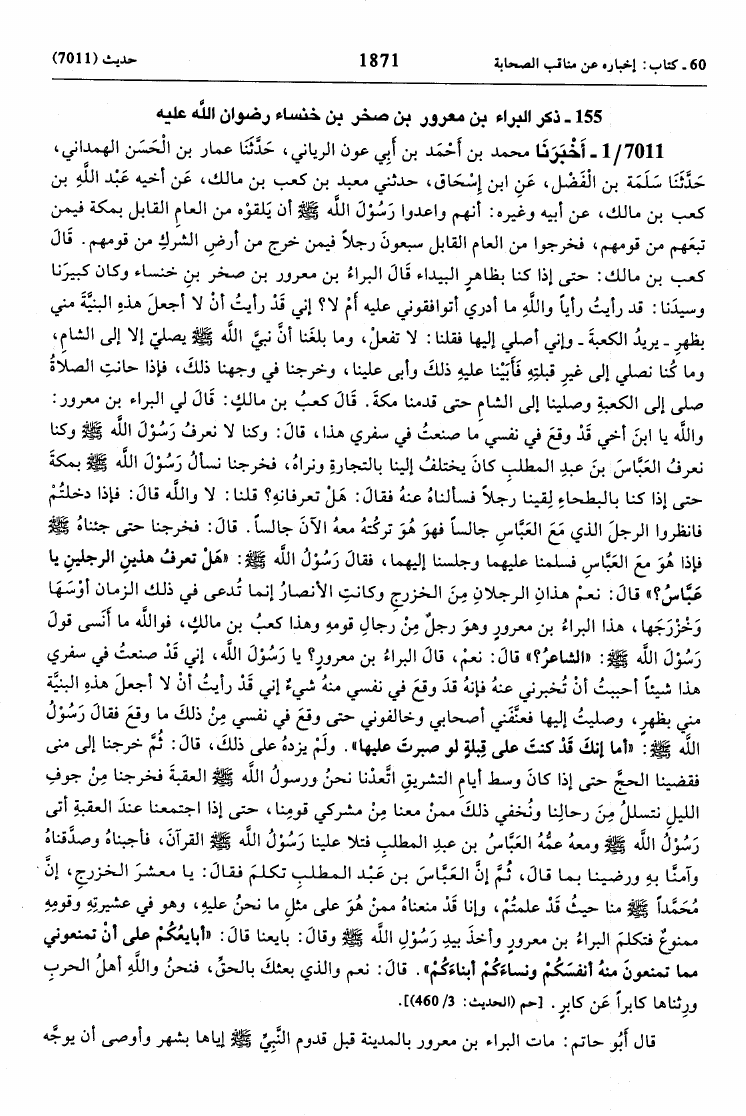 60 ـ كتاب: إخباره عن مناقب الصحابة 1871 حديث (7011)
155 ـ ذكر البراء بن معرور بن صخر بن خنساء رضوان اللَّه عليه
1/7011 ـ أَخْبَرَنَا محمد بن أَحْمَد بن أَبِي عون الرياني، حَدَّثَنَا عمار بن الْحَسَن الهمداني،
حَدَّثَنَا سَلَمَة بن الْفَضْل، عَنِ ابن إِسْحَاق، حدثني معبد بن كعب بن مالك، عَن أخيه عَبْد اللَّهِ بن
كعب بن مالك، عن أبيه وغيره: أنهم واعدوا رَسُوْلَ اللَّه ﷺ أن يَلقوْه من العامِ القابل بمكة فيمن
تبعَهم من قومهم، فخرجوا من العام القابل سبعونَ رجلاً فيمن خرج من أرضِ الشركِ من قومهم. قَالَ
كعب بن مالك: حتى إذا كنا بظاهرِ البيداء قَالَ البراءُ بن معرور بن صخر بنِ خنساء وكان كبيرَنا
وسيدَنا: قد رأيتُ رأياً واللَّهِ ما أدري أتوافقوني عليه أمْ لا؟ إني قَدْ رأيتُ أنْ لا أجعلَ هذهِ البنيَّةَ مني
بظهرِ ـ يريدُ الكعبةَ ـ وإني أصلي إليها فقلنا: لا تفعلْ، وما بلغَنا أنَّ نبيَّ اللَّه ﷺ يصليّ إلا إلى الشامِ،
وما كُنا نصلي إلى غيرِ قبلتِهِ فَأَبَيْنا عليهِ ذلكَ وأبى علينا، وخرجنا في وجهنا ذلكَ، فإذا حانتِ الصلاةُ
صلى إلى الكعبةِ وصلينا إلى الشامِ حتى قدمنا مكةَ. قَالَ كعبُ بن مالكٍ: قَالَ لي البراء بن معرور:
واللَّه يا ابنَ أخي قَدْ وقعَ في نفسي ما صنعتُ في سفري هذا، قالَ: وكنا لا نعرفُ رَسُوْلَ اللَّه ﷺ وكنا
نعرفُ العَبَّاسَ بنَ عبدِ المطلبِ كانَ يختلفُ إلينا بالتجارةِ ونراهُ، فخرجنا نسألُ رَسُوْلَ اللَّه ﷺ بمكةَ
حتى إذا كنا بالبطحاءِ لِقينا رجلاً فسألناهُ عنهُ فقالَ: هَلْ تعرفانهِ؟ قلنا: لا واللَّه قالَ: فإذا دخلتُمْ
فانظروا الرجلَ الذي مَعَ العَبَّاسِ جالساً فهوَ هُوَ تركتُه معهُ الآنَ جالساً. قالَ: فخرجنا حتى جئناهُ ﷺ
فإذا هُوَ معَ العَبَّاسِ فسلمنا عليهما وجلسنا إليهما، فقالَ رَسُوْلُ اللَّه ﷺ: «هَلْ تعرفُ هذينِ الرجلينِ يا
عَبَّاسُ؟» قالَ: نعمْ هذانِ الرجلانِ مِنَ الخزرج وكانتِ الأنصارُ إنما تُدعى في ذلك الزمان أوْسَهَا
وَخْزْرَجَها، هذا البراءُ بن معرورٍ وهوَ رجلٌ مِنْ رجالِ قومهِ وهذا كعبُ بن مالكٍ، فواللَّه ما أَنْسى قولَ
رَسُوْلِ اللَّه ﷺ: «الشاعرُ؟» قالَ: نعمْ، قالَ البراءُ بن معرورٍ؟ يا رَسُوْلَ اللَّه، إني قَدْ صنعتُ في سفري
هذا شيئاً أحببتُ أنْ تُخبرني عنهُ فإنهُ قدَ وقعَ في نفسي منهُ شيءٌ إني قَدْ رأيتُ أنْ لا أجعلَ هذهِ البنيَّةَ
مني بظهرٍ، وصليتُ إليها فعنَّفني أصحابي وخالفوني حتى وقعَ في نفسي مِنْ ذلكَ ما وقعَ فقالَ رَسُوْلُ
اللَّه ﷺ: «أما إنكَ قَدْ كنتَ على قِبلةٍ لو صبرتَ عليها». ولَمْ يزدهُ على ذلكَ، قالَ: ثُمَّ خرجنا إلى منى
فقضينا الحجَّ حتى إذا كانَ وسط أيامِ التشريقِ اتَّعدْنا نحنُ ورسولُ اللَّه ﷺ العقبةَ فخرجنا مِنْ جوفِ
الليلِ نتسللُ مِنَ رحالِنا ونُخفي ذلكَ ممنْ معنا مِنْ مشركي قومِنا، حتى إذا اجتمعنا عندَ العقبةِ أتى
رَسُوْلُ اللَّه ﷺ ومعهُ عمُّهُ العَبَّاسُ بن عبدِ المطلبِ فتلا علينا رَسُوْلُ اللَّه ﷺ القرآنَ، فأجبناهُ وصدَّقناهُ
وآمنَّا بهِ ورضينا بما قالَ، ثُمَّ إنَّ العَبَّاسَ بن عَبْد المطلبِ تكلمَ فقالَ: يا معشرَ الخزرجِ، إنَّ
مُحَمَّداً ﷺ منا حيثُ قَدْ علمتُمْ، وإنا قَدْ منعناهُ ممنْ هُوَ على مثلِ ما نحنُ عليهِ، وهو في عشيرتِهِ وقومِهِ
ممنوعٌ فتكلمَ البراءُ بن معرورٍ وأخذَ بيدِ رَسُوْلِ اللَّه ﷺ وقالَ: بايعنا قالَ: «أبايعُكُمْ على أنْ تمنعوني
مما تمنعونَ منهُ أنفسَكُمْ ونساءَكُمْ أبناءَكُمْ». قالَ: نعم والذي بعثكَ بالحقِّ، فنحنُ واللَّهِ أهلُ الحربِ
ورِثناها كابراً عَن كابرٍ. [حم (الحديث: 3/ 460)].
قال أَبُو حاتم: مات البراء بن معرور بالمدينة قبل قدوم النَّبِيِّ ﷺ إياها بشهر وأوصى أن يوجَّه